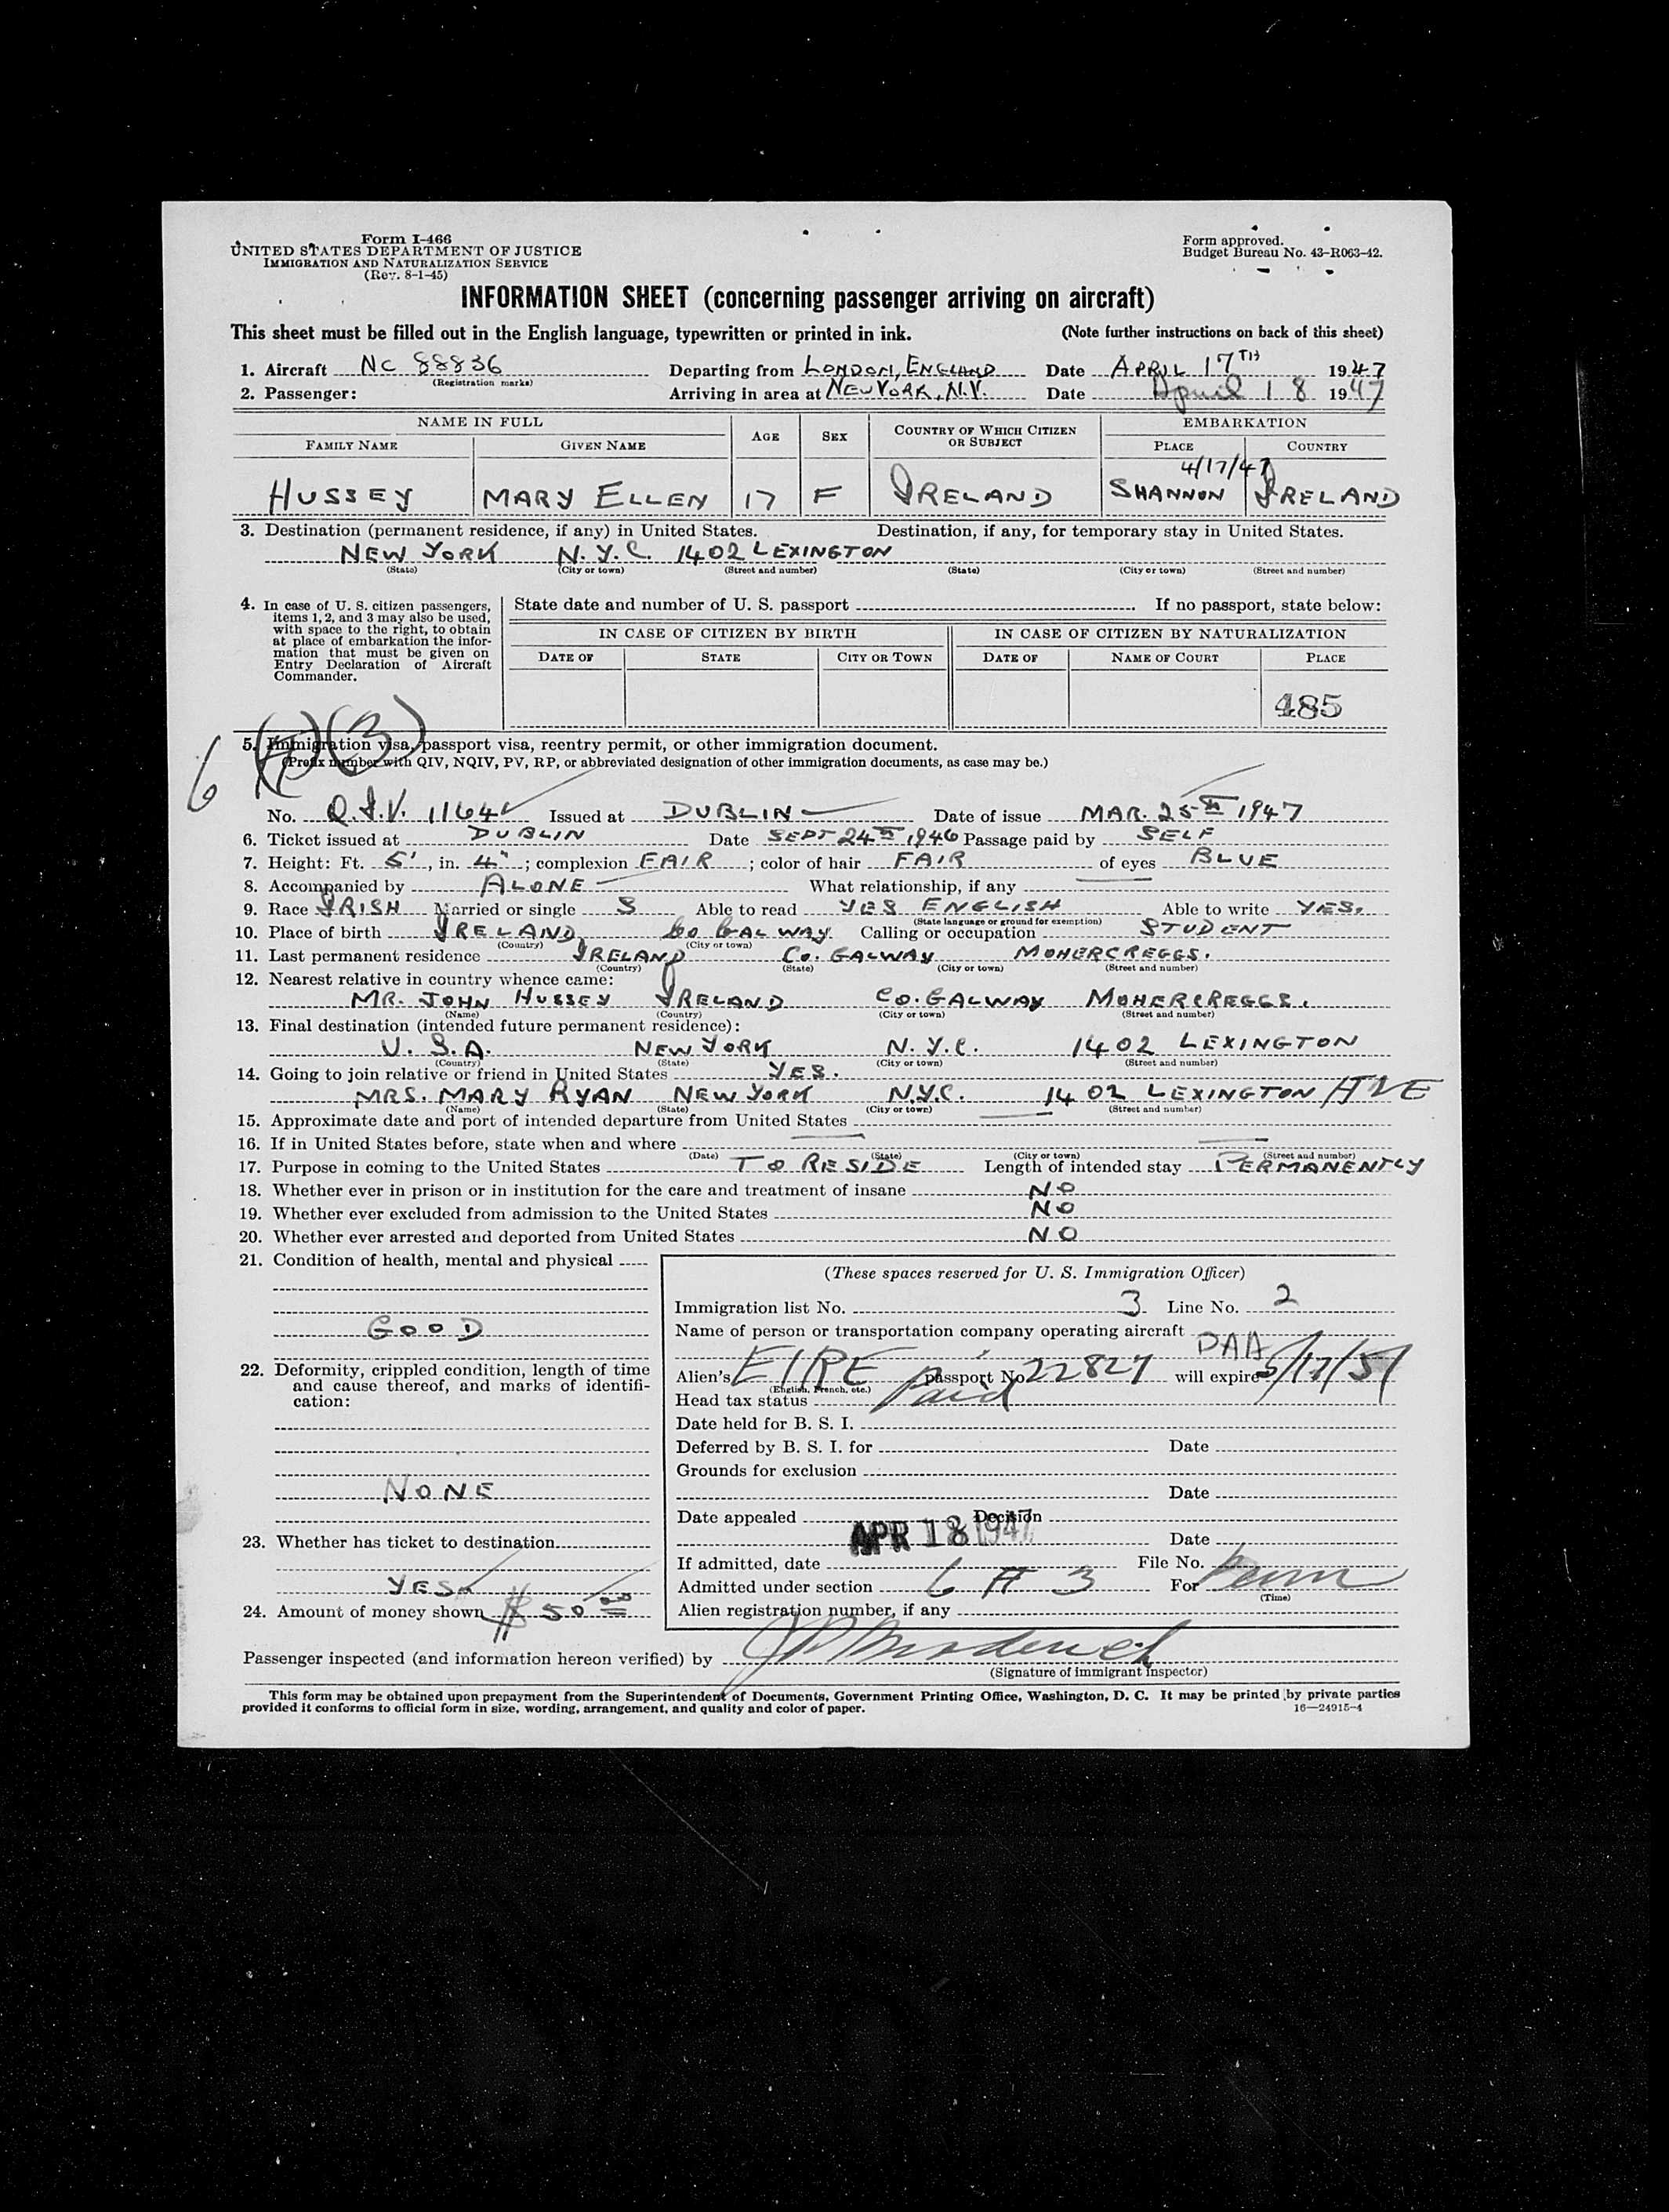 Form I-466
UNITED STATES DEPARTMENT OF JUSTICE
IMMIGRATION AND NATURALIZATION SERVICE
(Rev. 8-1-45)
Form approved.
Budget Bureau No. 43-R063-42.
INFORMATION SHEET (concerning passenger arriving on aircraft)
This sheet must be filled out in the English language, typewritten or printed in ink. (Note further instructions on back of this sheet)
1. Aircraft NC 88836 Departing from LONDON, ENGLAND Date APRIL 17TH 1947
(Registration marks)
2. Passenger: Arriving in area at NEW YORK, N.Y. Date April 18 1947
NAME IN FULL AGE SEX COUNTRY OF WHICH CITIZEN OR SUBJECT EMBARKATION
FAMILY NAME GIVEN NAME PLACE COUNTRY
4/17/47
HUSSEY MARY ELLEN 17 F IRELAND SHANNON IRELAND
3. Destination (permanent residence, if any) in United States. Destination, if any, for temporary stay in United States.
NEW YORK N.Y.C. 1402 LEXINGTON
(State) (City or town) (Street and number) (State) (City or town) (Street and number)
4. In case of U. S. citizen passengers, items 1, 2, and 3 may also be used, with space to the right, to obtain at place of embarkation the information that must be given on Entry Declaration of Aircraft Commander.
State date and number of U. S. passport If no passport, state below:
IN CASE OF CITIZEN BY BIRTH IN CASE OF CITIZEN BY NATURALIZATION
DATE OF STATE CITY OR TOWN DATE OF NAME OF COURT PLACE
485
6 (3)
5. Immigration visa, passport visa, reentry permit, or other immigration document.
(Prefix number with QIV, NQIV, PV, RP, or abbreviated designation of other immigration documents, as case may be.)
No. Q.I.V. 1164 Issued at DUBLIN Date of issue MAR. 25TH 1947
6. Ticket issued at DUBLIN Date SEPT 24TH 1946 Passage paid by SELF
7. Height: Ft. 5', in. 4"; complexion FAIR; color of hair FAIR of eyes BLUE
8. Accompanied by ALONE What relationship, if any
9. Race IRISH Married or single S Able to read YES ENGLISH Able to write YES.
(State language or ground for exemption)
10. Place of birth IRELAND Co GALWAY. Calling or occupation STUDENT
(Country) (City or town)
11. Last permanent residence IRELAND Co. GALWAY MOHERCREGGS.
(Country) (State) (City or town) (Street and number)
12. Nearest relative in country whence came:
MR. JOHN HUSSEY IRELAND CO. GALWAY MOHERCREGGS.
(Name) (Country) (City or town) (Street and number)
13. Final destination (intended future permanent residence):
U.S.A. NEW YORK N.Y.C. 1402 LEXINGTON
(Country) (State) (City or town) (Street and number)
14. Going to join relative or friend in United States YES.
MRS. MARY RYAN NEW YORK N.Y.C. 1402 LEXINGTON AVE
(Name) (State) (City or town) (Street and number)
15. Approximate date and port of intended departure from United States
16. If in United States before, state when and where
(Date) (State) (City or town) (Street and number)
17. Purpose in coming to the United States TO RESIDE Length of intended stay PERMANENTLY
18. Whether ever in prison or in institution for the care and treatment of insane NO
19. Whether ever excluded from admission to the United States NO
20. Whether ever arrested and deported from United States NO
21. Condition of health, mental and physical
GOOD
22. Deformity, crippled condition, length of time and cause thereof, and marks of identification:
NONE
23. Whether has ticket to destination
YES
24. Amount of money shown $50.00
(These spaces reserved for U. S. Immigration Officer)
Immigration list No. 3 Line No. 2
Name of person or transportation company operating aircraft
PAA
Alien's EIRE passport No. 22827 will expire 5/17/51
(English, French, etc.)
Head tax status Paid
Date held for B. S. I.
Deferred by B. S. I. for Date
Grounds for exclusion
Date
Date appealed Decision
APR 18 1947 Date
If admitted, date File No.
Admitted under section 6 A 3 For Perm
(Time)
Alien registration number, if any
Passenger inspected (and information hereon verified) by
(Signature of immigrant inspector)
This form may be obtained upon prepayment from the Superintendent of Documents, Government Printing Office, Washington, D. C. It may be printed by private parties
provided it conforms to official form in size, wording, arrangement, and quality and color of paper. 16—24915-4